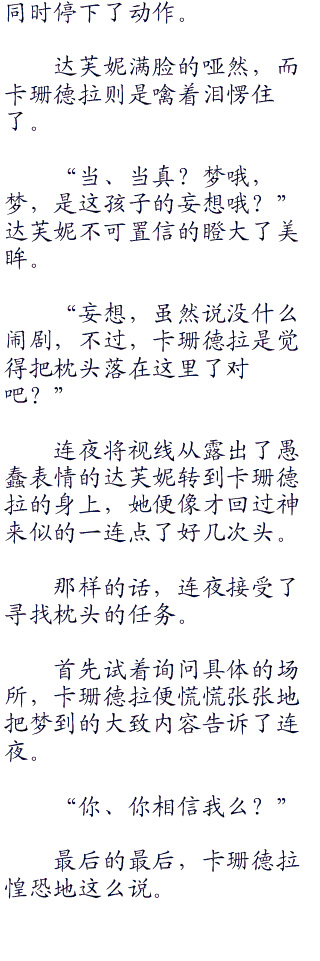 同时停下了动作。
达芙妮满脸的哑然，而
卡珊德拉则是噙着泪愣住
了。
“当、当真？梦哦，
梦，是这孩子的妄想哦？”
达芙妮不可置信的瞪大了美
眸。
“妄想，虽然说没什么
闹剧，不过，卡珊德拉是觉
得把枕头落在这里了对
吧？”
连夜将视线从露出了愚
蠢表情的达芙妮转到卡珊德
拉的身上，她便像才回过神
来似的一连点了好几次头。
那样的话，连夜接受了
寻找枕头的任务。
首先试着询问具体的场
所，卡珊德拉便慌慌张张地
把梦到的大致内容告诉了连
夜。
“你、你相信我么？”
最后的最后，卡珊德拉
惶恐地这么说。